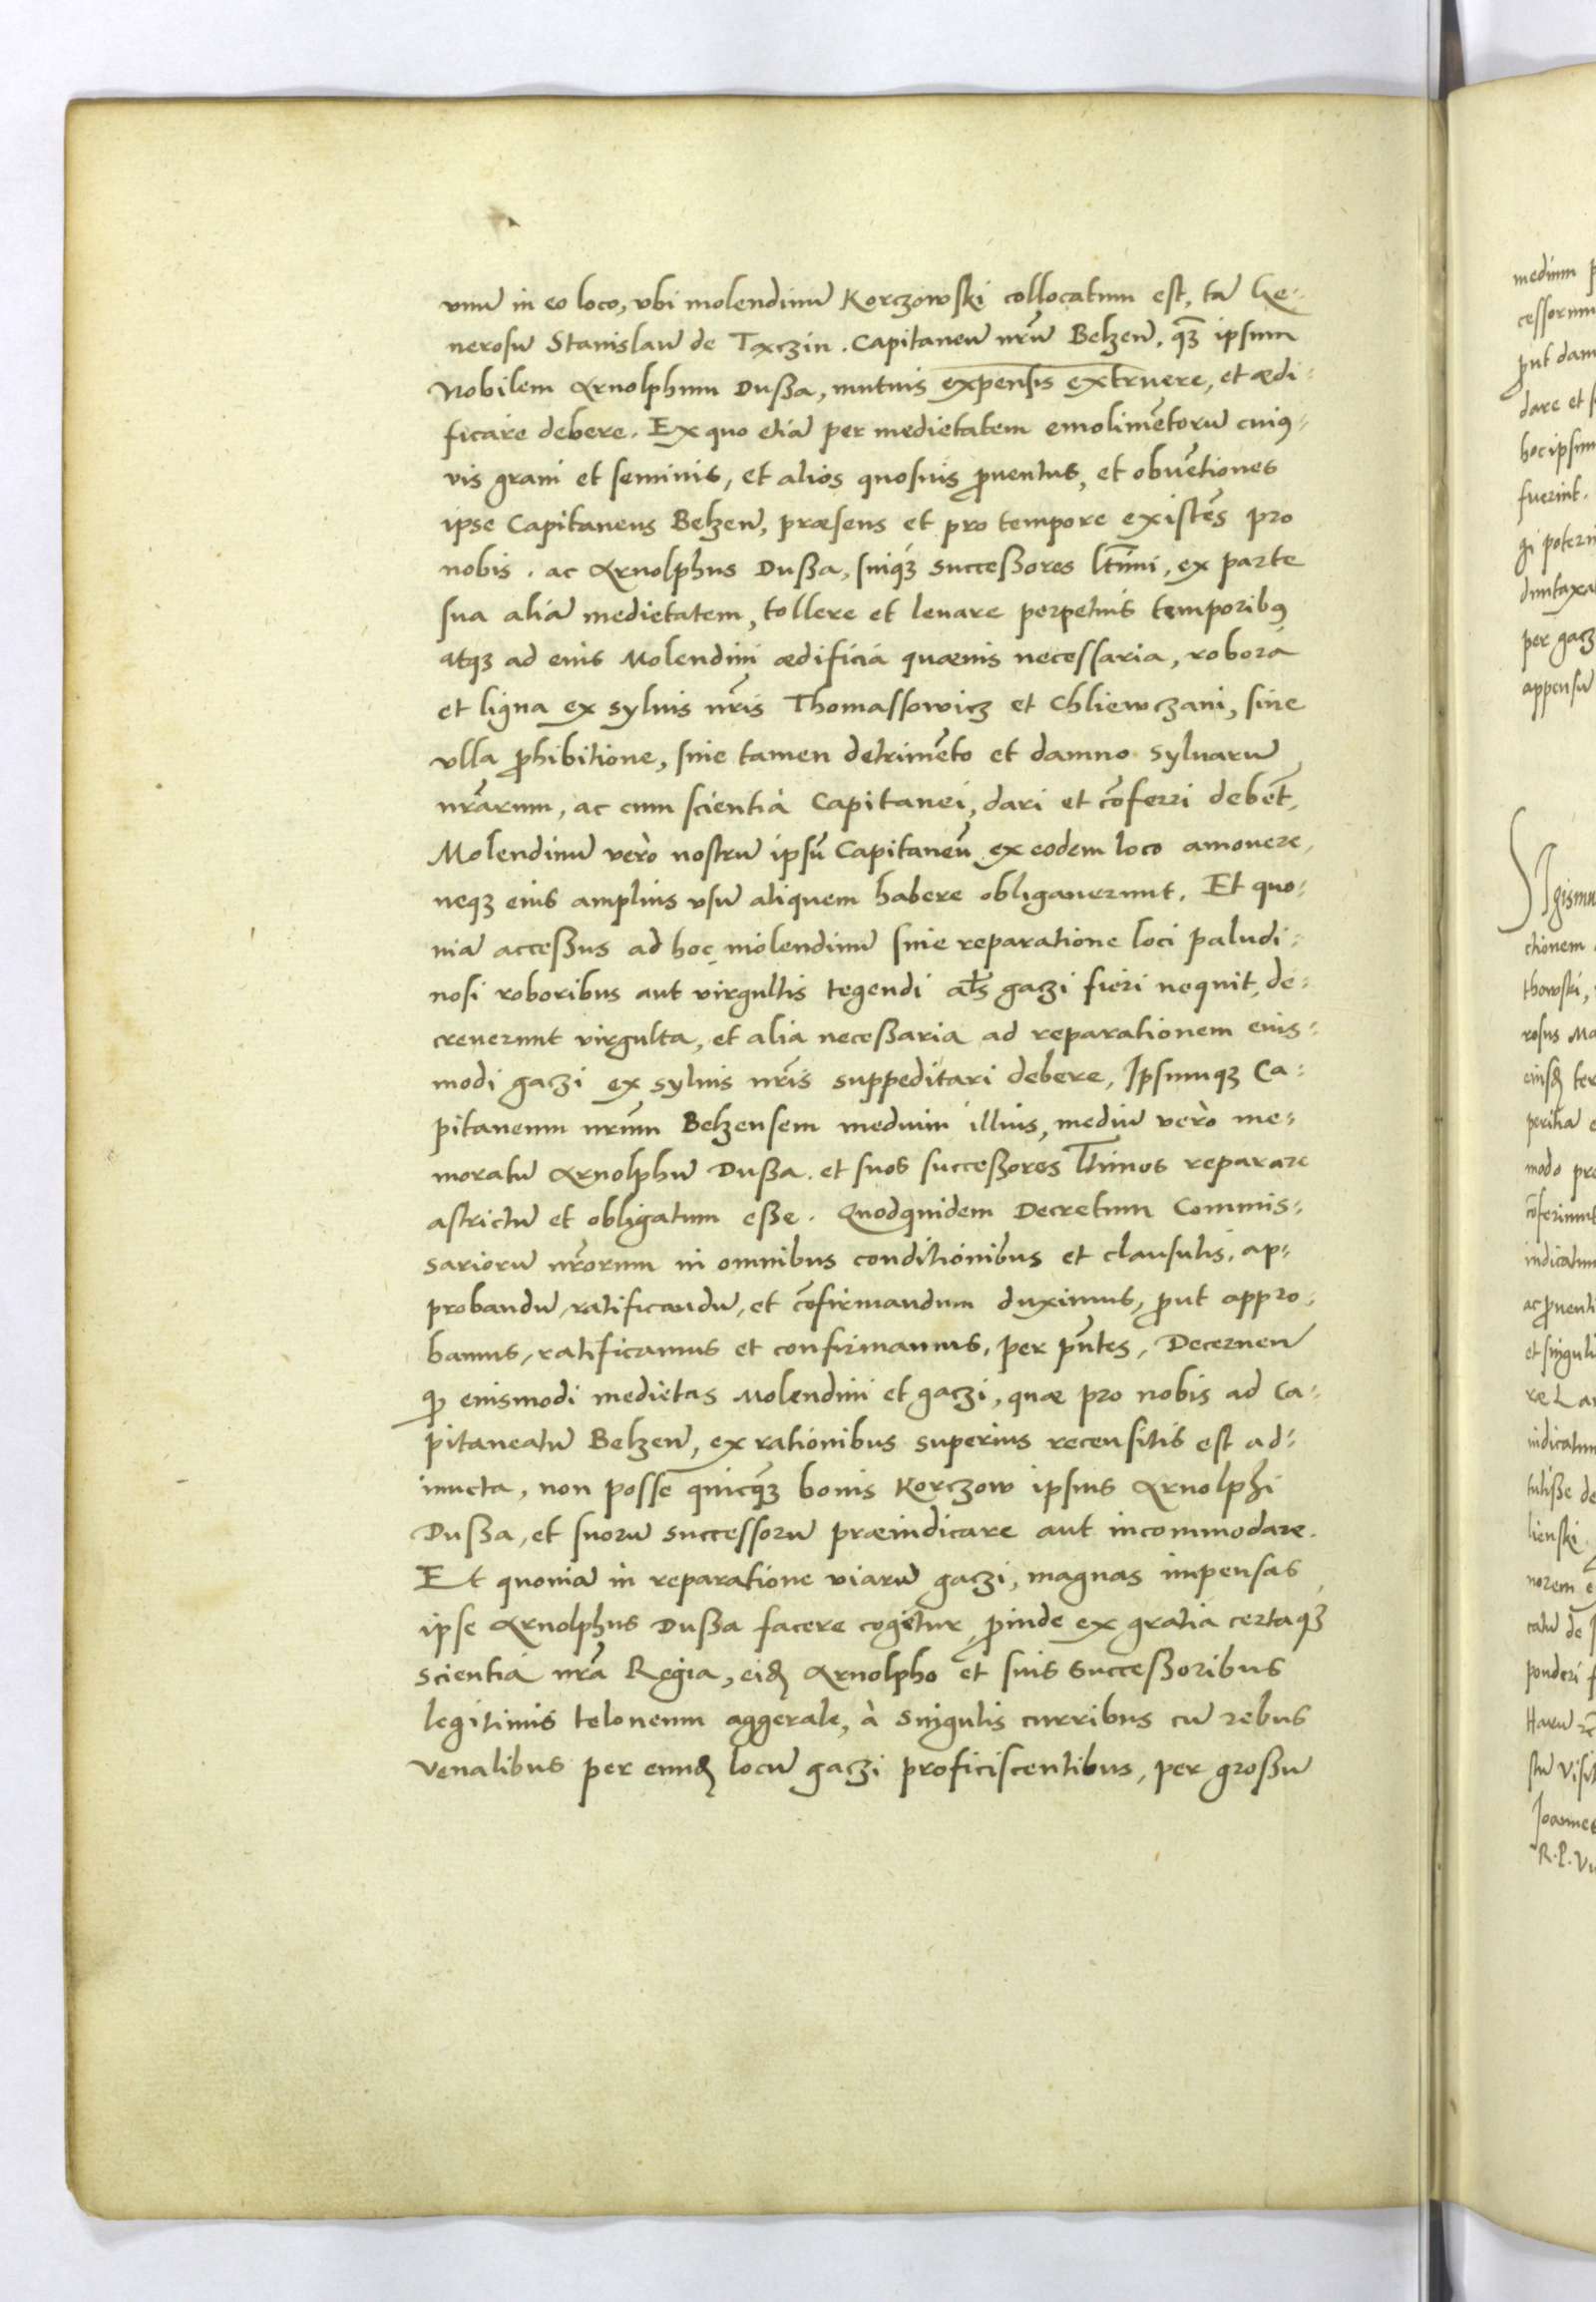 vnũ in eo loco, vbi molendinũ Korczowski collocatum est, tã Ge-
nerosũ Stanislaũ de Taxczin. Capitaneũ nr̃ũ Belzen̄. qꝫ ipsum
Nobilem Arnolphum Dußa, mutuis expensis extruere, et ædi-
ficare debere. Ex quo etiã per medietatem emolimẽtorũ cuiꝰ-
vis grani et seminis, et alios quosuis ꝓuentus, et obuẽtiones
ipse Capitaneus Belzen̄, præsens et pro tempore existẽs pro
nobis. ac Arnolphus Dußa, suiqꝫ succeßores ltĩmi, ex parte
sua aliã medietatem, tollere et leuare perpetuis temporibꝰ
atqꝫ ad eius Molendini ædificia quæuis necessaria, robora
et ligna ex syluis nr̃is Thomassowicz et Chliewczani, sine
vlla ꝓhibitione, sine tamen detrimẽto et damno syluarũ
nr̃arum, ac cum scientia Capitanei, dari et cõferri debẽt,
Molendinũ verò nostrũ ipsũ Capitaneũ ex eodem loco amouere,
neqꝫ eius amplius vsũ aliquem habere obligauerunt. Et quo-
niã acceßus ad hoc molendinũ sine reparatione loci paludi-
nosi roboribus aut virgultis tegendi al̃s gaczi fieri nequit, de-
creuerunt virgulta, et alia neceßaria ad reparationem eius-
modi gaczi ex syluis nr̃is suppeditari debere, Ipsumqꝫ Ca-
pitaneum nr̃um Belzensem medium illius, mediũ verò me-
moratũ Arnolphũ Dußa. et suos succeßores ltĩmos reparare
astrictũ et obligatum eße. Quodquidem Decretum Commis-
sariorũ nr̃orum in omnibus conditionibus et clausulis, ap-
probandũ, ratificandũ, et cõfirmandum duximus, ꝓut appro-
bamus, ratificamus et confirmamus, per pñtes, Decernen̄
ꝙ eiusmodi medietas Molendini et gaczi, quæ pro nobis ad Ca-
pitaneatũ Belzen̄, ex rationibus superius recensitis est ad-
iuncta, non posse quicqꝫ bonis Korczow ipsius Arnolphi
Dußa, et suorũ successorũ præiudicare aut incommodare.
Et quoniã in reparatione viarũ gaczi, magnas impensas
ipse Arnolphus Dußa facere cogitur, ꝓinde ex gratia certaqꝫ
scientia nr̃a Regia, eidꝫ Arnolpho et suis succeßoribus
legitimis teloneum aggerale, à singulis curribus cũ rebus
venalibus per eundꝫ locũ gaczi proficiscentibus, per großũ
medium
cessorum
ꝓut dam
dare et
hoc ipsum
fuerint.
gi potern
duntaxa
per gacz
appensũ
SIgismu
ctionem
thowski,
rosus Ma
eiusdꝫ ter
modo pre
cõferimus
indicatum
ac ꝓuenti
et singuli
re La
indicatum
tuliße de
lienski.
norem e
catũ de
ponderi f
Harũ
stũ Visit
Joannes
R. P. Vi